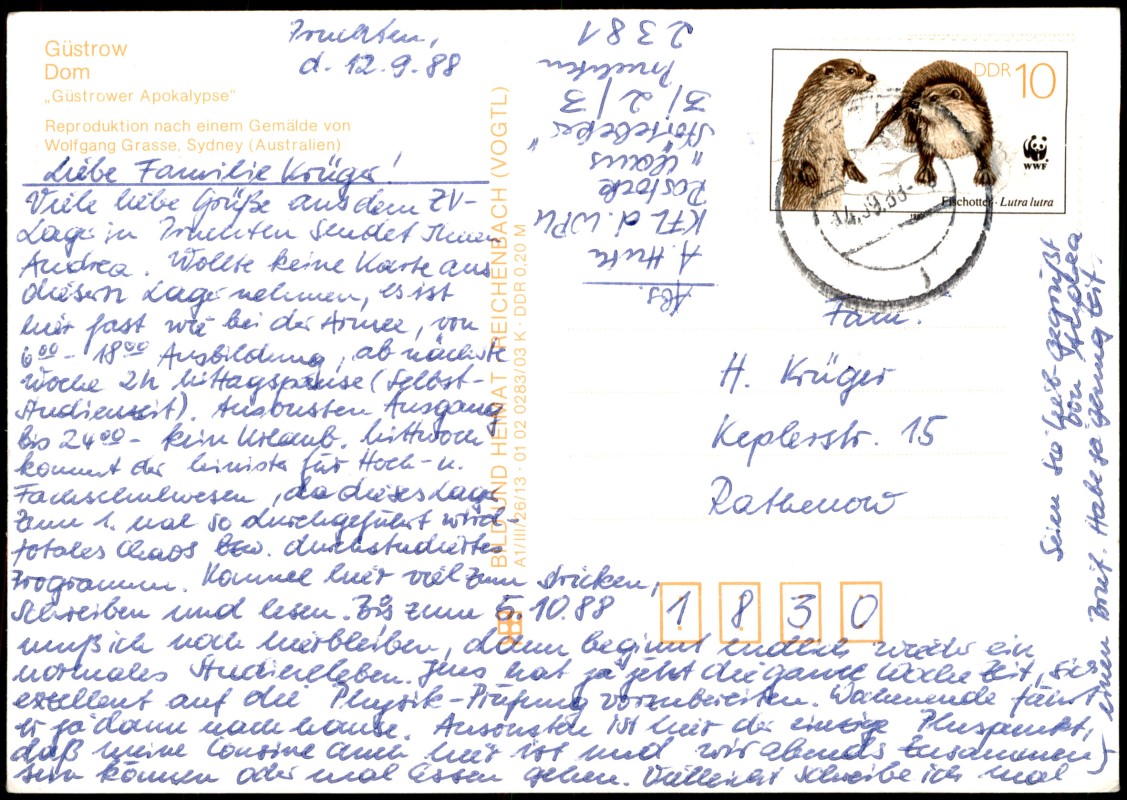 Güstrow
Dom
„Güstrower Apokalypse"
Reproduktion nach einem Gemälde von
Wolfgang Grasse, Sydney (Australien)
Pruchten,
d. 12.9.88
Liebe Familie Krüger!
Viele liebe Grüße aus dem ZV-
Lager in Pruchten sendet Ihnen
Andrea. Wollte keine Karte aus
diesem Lager nehmen, es ist
hier fast wie bei der Armee, von
6⁰⁰ - 18⁰⁰ Ausbildung, ab nächste
Woche 2h Mittagspause (Selbst-
studienzeit). Ansonsten Ausgang
bis 24⁰⁰ - kein Urlaub. Mittwoch
kommt der Minister für Hoch- u.
Fachschulwesen, da dieses Lager
zum 1. Mal so durchgeführt wird.
totales Chaos bzw. durchstudiertes
Programm. Komme hier viel zum Stricken,
Schreiben und Lesen. Bis zum 5.10.88
muß ich noch hierbleiben, dann beginnt endlich wieder ein
normales Studienleben. Jens hat ja jetzt die ganze Woche Zeit, sich
exzellent auf die Physik-Prüfung vorzubereiten. Wochenende fährt
er ja dann nach Hause. Ansonsten ist hier der einzige Pluspunkt,
daß meine Cousine auch hier ist und wir abends zusammen
sein können oder mal Essen gehen. Vielleicht schreibe ich mal
einen Brief. Habe ja genug Zeit.
Seien Sie lieb gegrüßt
von Andrea
BILD UND HEIMAT REICHENBACH (VOGTL)
A1/III/26/13 · 01 02 0283/03 K · DDR 0,20 M
Abs.
A. Huth
KFL d. WPU
Rostock
„Klaus
Störtebeker"
3/2/3
Pruchten
2381
DDR 10
WWF
Fischotter · Lutra lutra
14.09.88-
Fam.
H. Krüger
Keplerstr. 15
Rathenow
1830